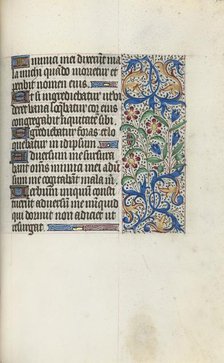 Inimici mei dixerunt ma
la michi quando morietur et
peribit nomen eius.
Et si ingrediebatur ut vi
deret vana loquebatur cor eius
congregavit iniquitatem sibi.
Egrediebatur foras et lo
quebatur in idipsum.
Adversum me susurra
bant omnes inimici mei adver
sum me cogitabant mala michi
Verbum iniquum consti
tuerunt adversum me nunquid
qui dormit non adiciet ut
resurgat